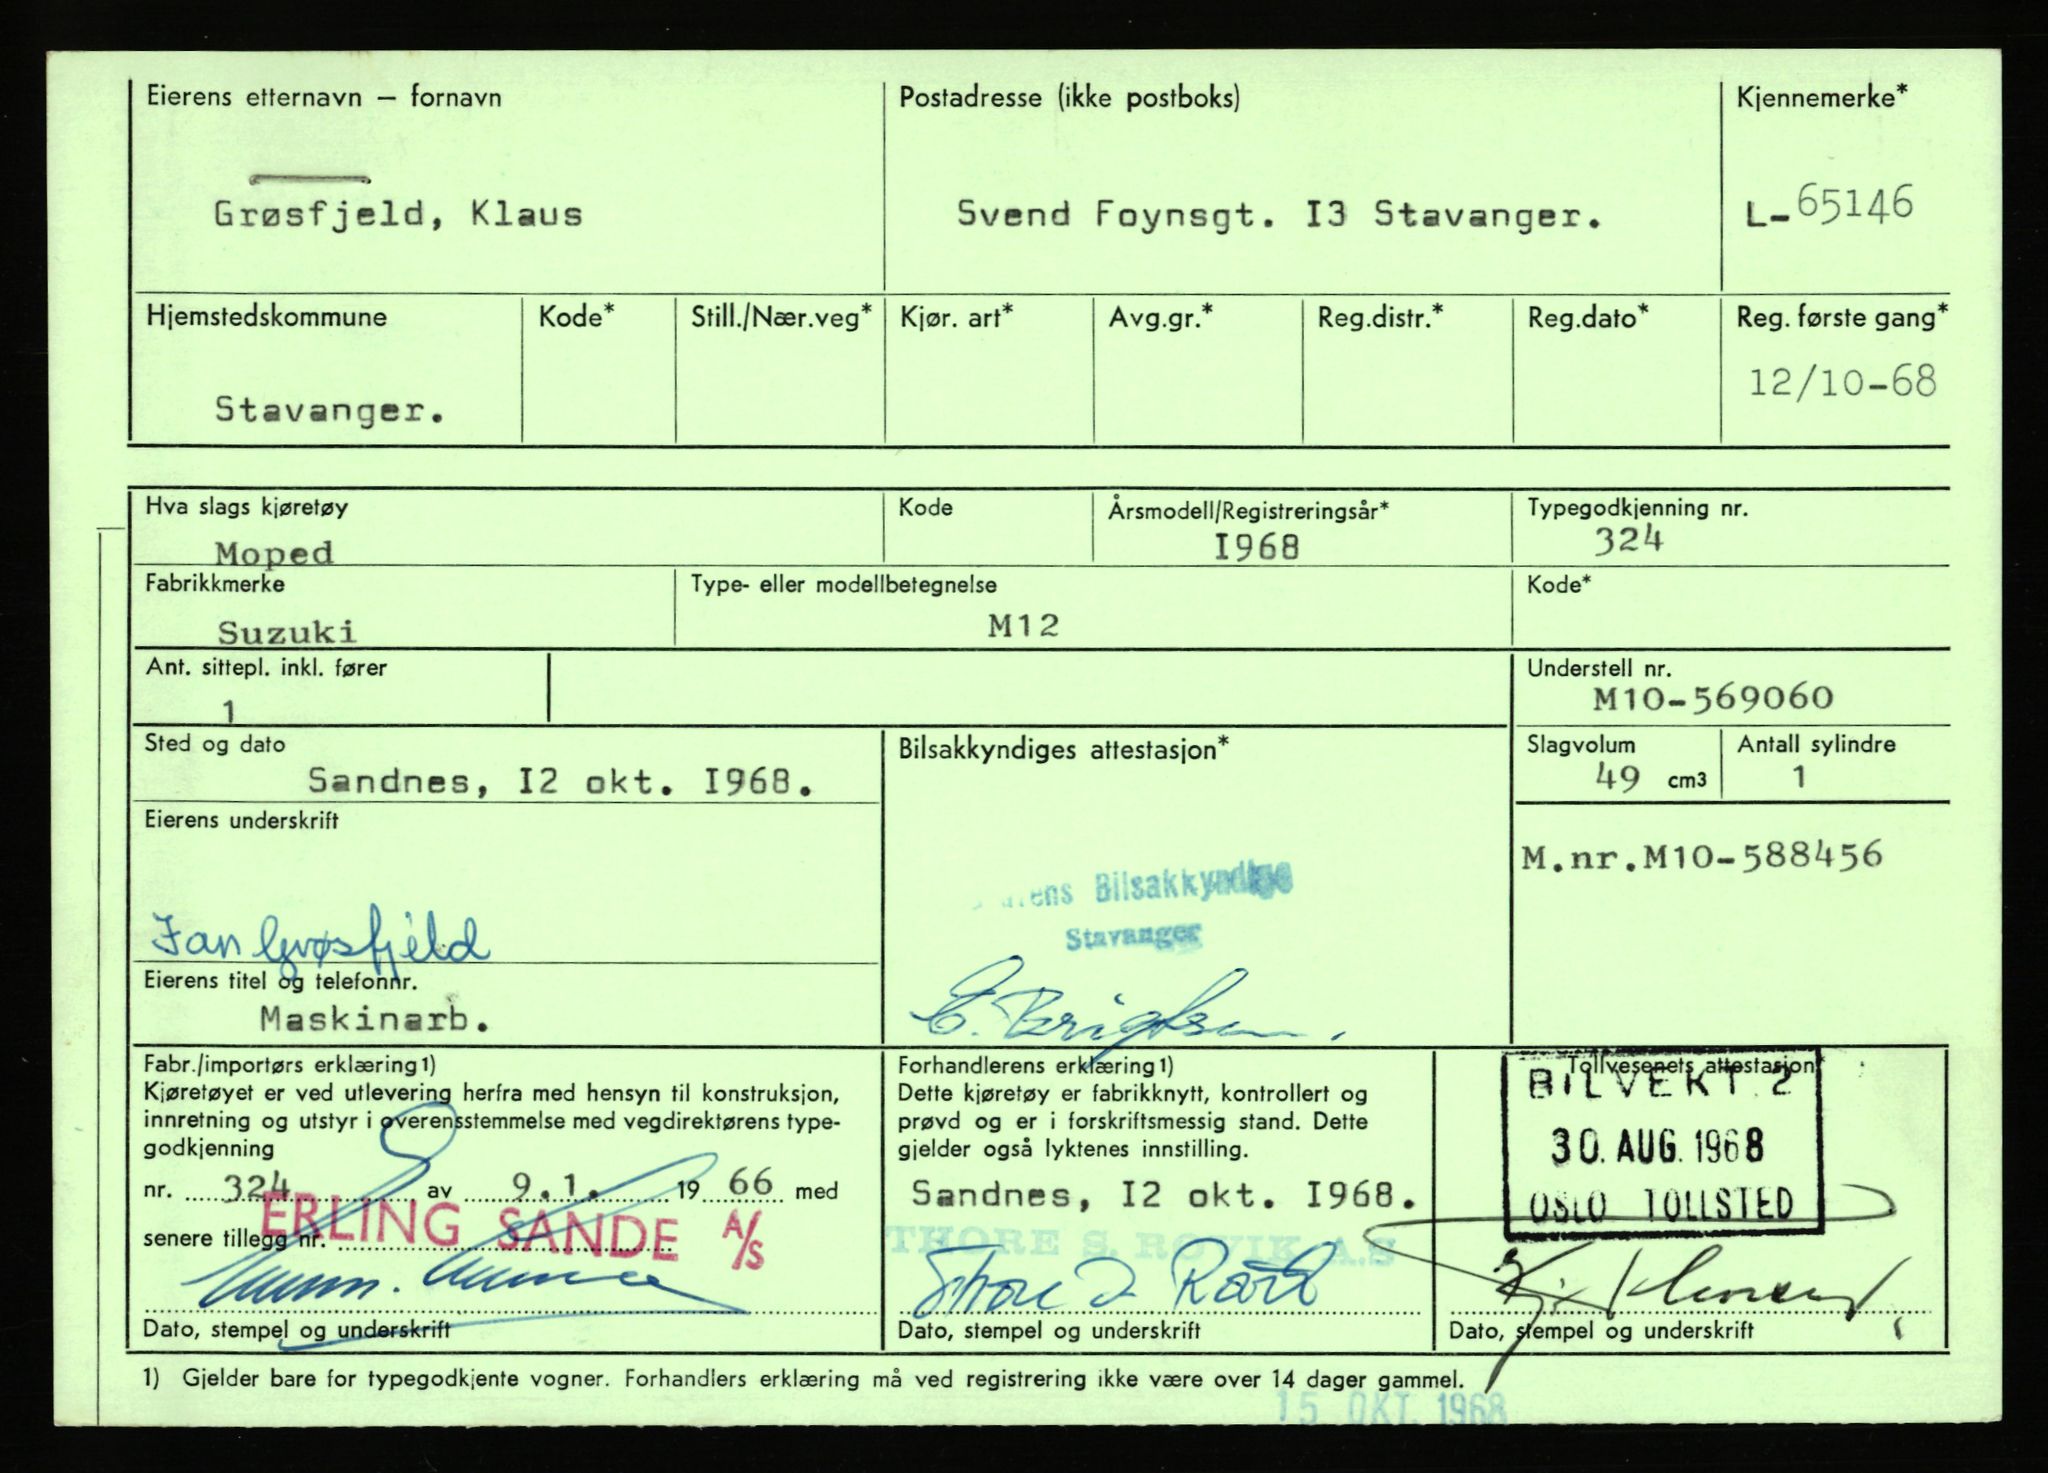 Eierens etternavn – fornavn
Grøsfjeld, Klaus
Postadresse (ikke postboks)
Svend Foynsgt. I3 Stavanger.
Kjennemerke*
L-65146
Hjemstedskommune
Stavanger.
Kode*
Still./Nær.veg*
Kjør. art*
Avg.gr.*
Reg.distr.*
Reg.dato*
Reg. første gang*
12/10-68
Hva slags kjøretøy
Moped
Kode
Årsmodell/Registreringsår*
I968
Typegodkjenning nr.
324
Fabrikkmerke
Suzuki
Type- eller modellbetegnelse
M12
Kode*
Ant. sittepl. inkl. fører
1
Understell nr.
M10-569060
Sted og dato
Sandnes, I2 okt. I968.
Bilsakkyndiges attestasjon*
Slagvolum
49 cm3
Antall sylindre
1
Eierens underskrift
Jan Grøsfjeld
M.nr.M10-588456
Bilsakkyndige
Stavanger
Eierens titel og telefonnr.
Maskinarb.
Fabr./importørs erklæring1)
Kjøretøyet er ved utlevering herfra med hensyn til konstruksjon,
innretning og utstyr i overensstemmelse med vegdirektørens type-
godkjenning
nr. 324 av 9.1. 19 66 med
senere tillegg nr.
ERLING SANDE A/S
Dato, stempel og underskrift
Forhandlerens erklæring1)
Dette kjøretøy er fabrikknytt, kontrollert og
prøvd og er i forskriftsmessig stand. Dette
gjelder også lyktenes innstilling.
Sandnes, I2 okt. I968.
THORE S. RØVIK A.S
Dato, stempel og underskrift
Tollvesenets attestasjon*
BILVEKT 2
30. AUG. 1968
OSLO TOLLSTED
Dato, stempel og underskrift
1) Gjelder bare for typegodkjente vogner. Forhandlers erklæring må ved registrering ikke være over 14 dager gammel.
15 OKT. 1968